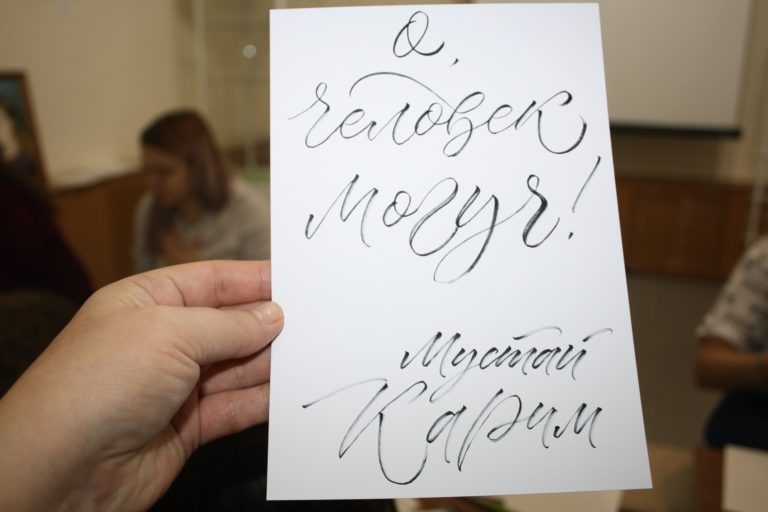 О,
человек
могуч!
Мустай
Карим